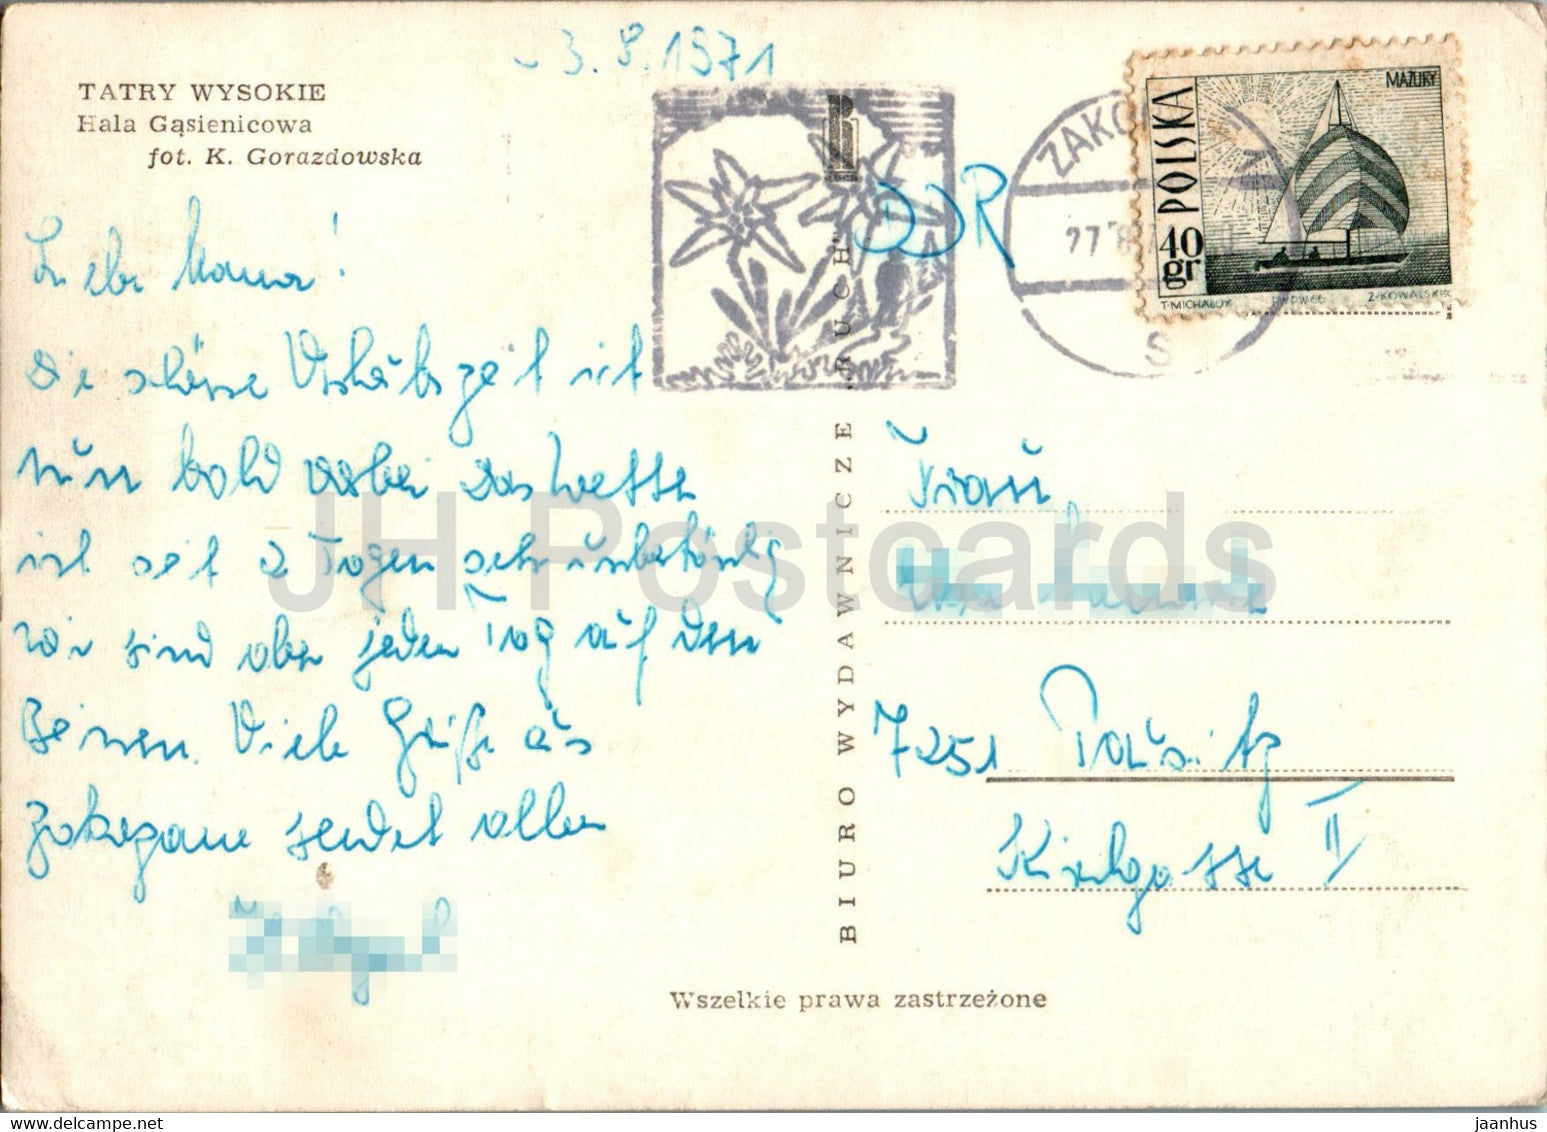 - 3.8.1971
TATRY WYSOKIE
Hala Gąsienicowa
fot. K. Gorazdowska
MAZURY
POLSKA
40 gr
T·MICHALUK PWPW66 Z·KOWALSKI SC
ZAKO
27
S
DDR
Liebe Mama!
Die schöne Urlaubszeit ist
nun bald vorbei das Wetter
ist seit 2 Tagen sehr unbeständig
wir sind aber jeden Tag auf den
Beinen. Viele Grüße aus
Zakopane sendet allen
Frau
7251 Pausitz
Kirchgasse 11
BIURO WYDAWNICZE „RUCH"
Wszelkie prawa zastrzeżone
JH Postcards
www.delcampe.net
jaanhus